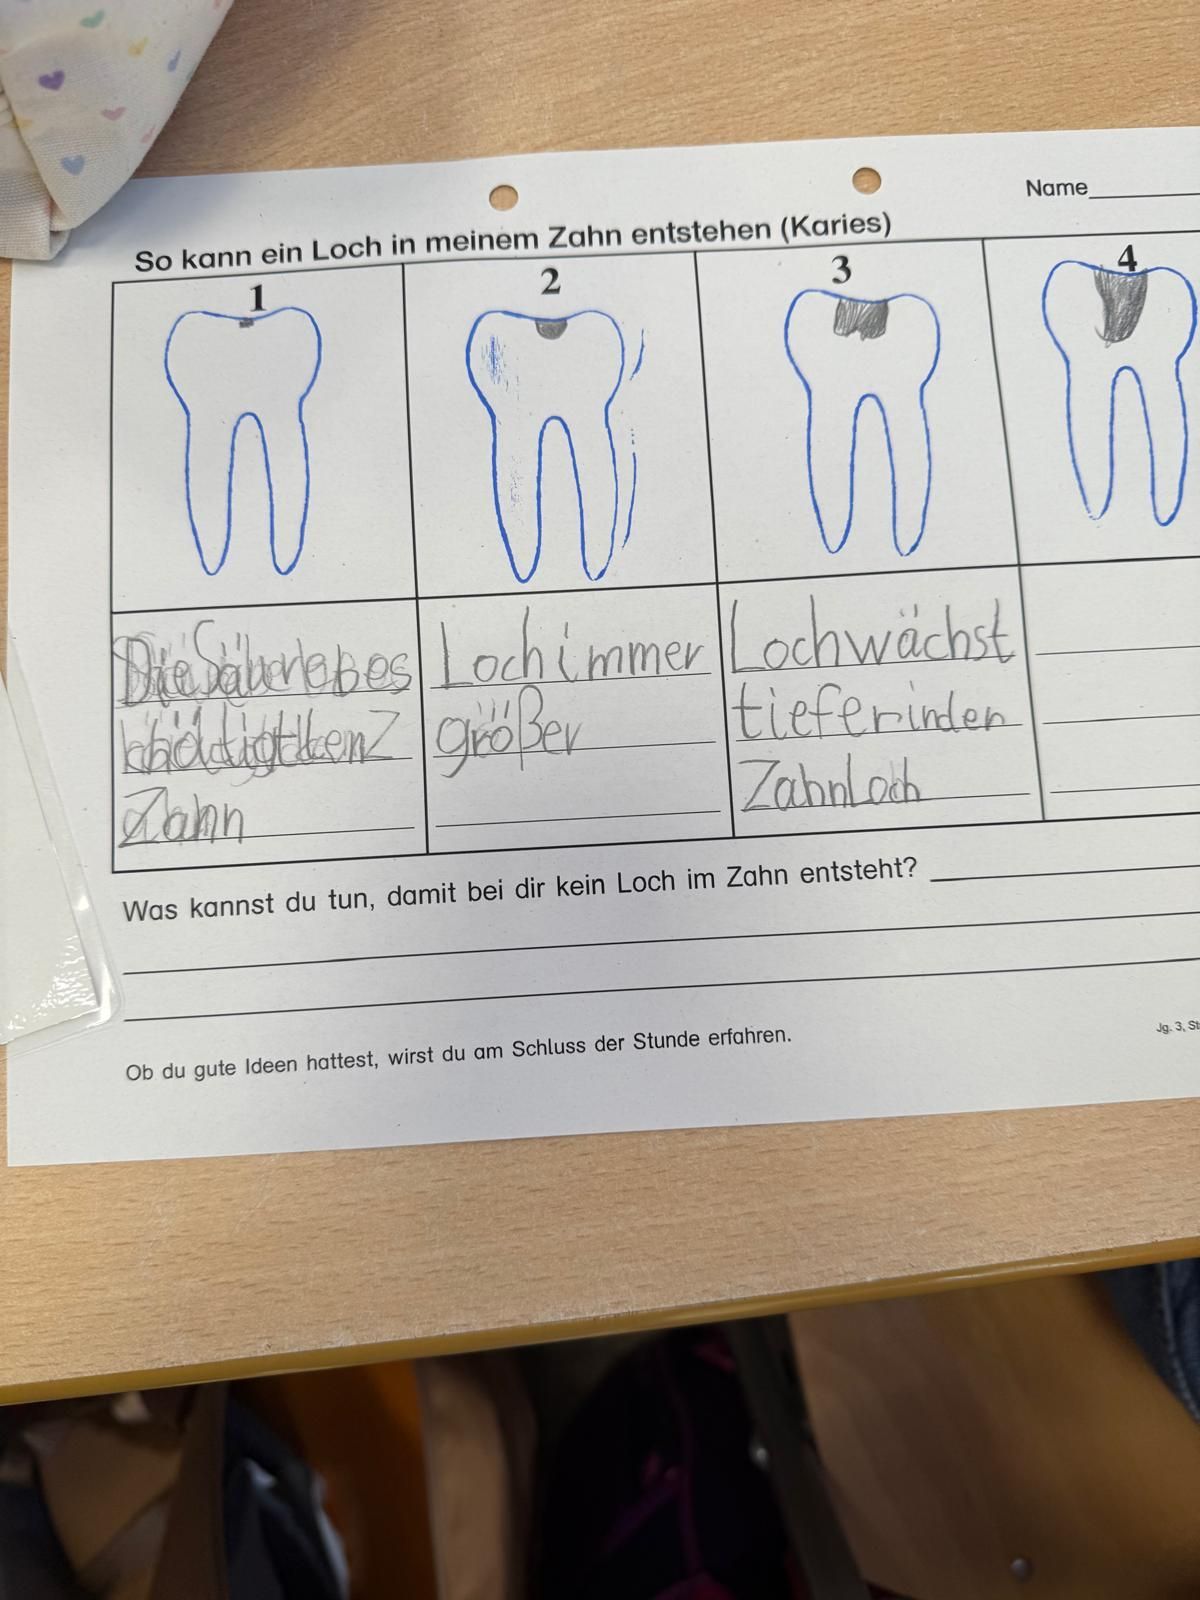 Name
So kann ein Loch in meinem Zahn entstehen (Karies)
1
2
3
4
Die
Zahn
Loch immer
größer
Loch wächst
tiefer in den
Zahn Loch
Was kannst du tun, damit bei dir kein Loch im Zahn entsteht?
Ob du gute Ideen hattest, wirst du am Schluss der Stunde erfahren.
Jg. 3,